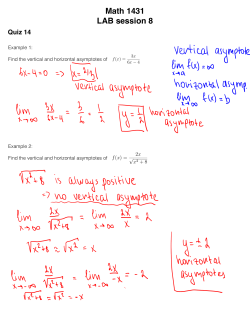 Math 1431
LAB session 8
Quiz 14
Example 1:
Find the vertical and horizontal asymptotes of f(x) = 3x/(6x − 4)
6x-4=0 => x = 2/3
vertical asymptote
lim x→∞ 3x/(6x-4) = 3/6 = 1/2
y = 1/2 horizontal
asymptote
vertical asymptote
lim x→a f(x)=∞
horizontal asymp.
lim x→∞ f(x)=b
Example 2:
Find the vertical and horizontal asymptotes of f(x) = 2x/√(x² + 8)
√(x²+8) is always positive
=> no vertical asymptote
lim x→∞ 2x/√(x²+8) = lim x→∞ 2x/x = 2
√(x²+8) ≈ √x² = x
lim x→-∞ 2x/√(x²+8) = lim x→-∞ 2x/-x = -2
√(x²+8) ≈ √x² = -x
y = ± 2
horizontal
asymptotes